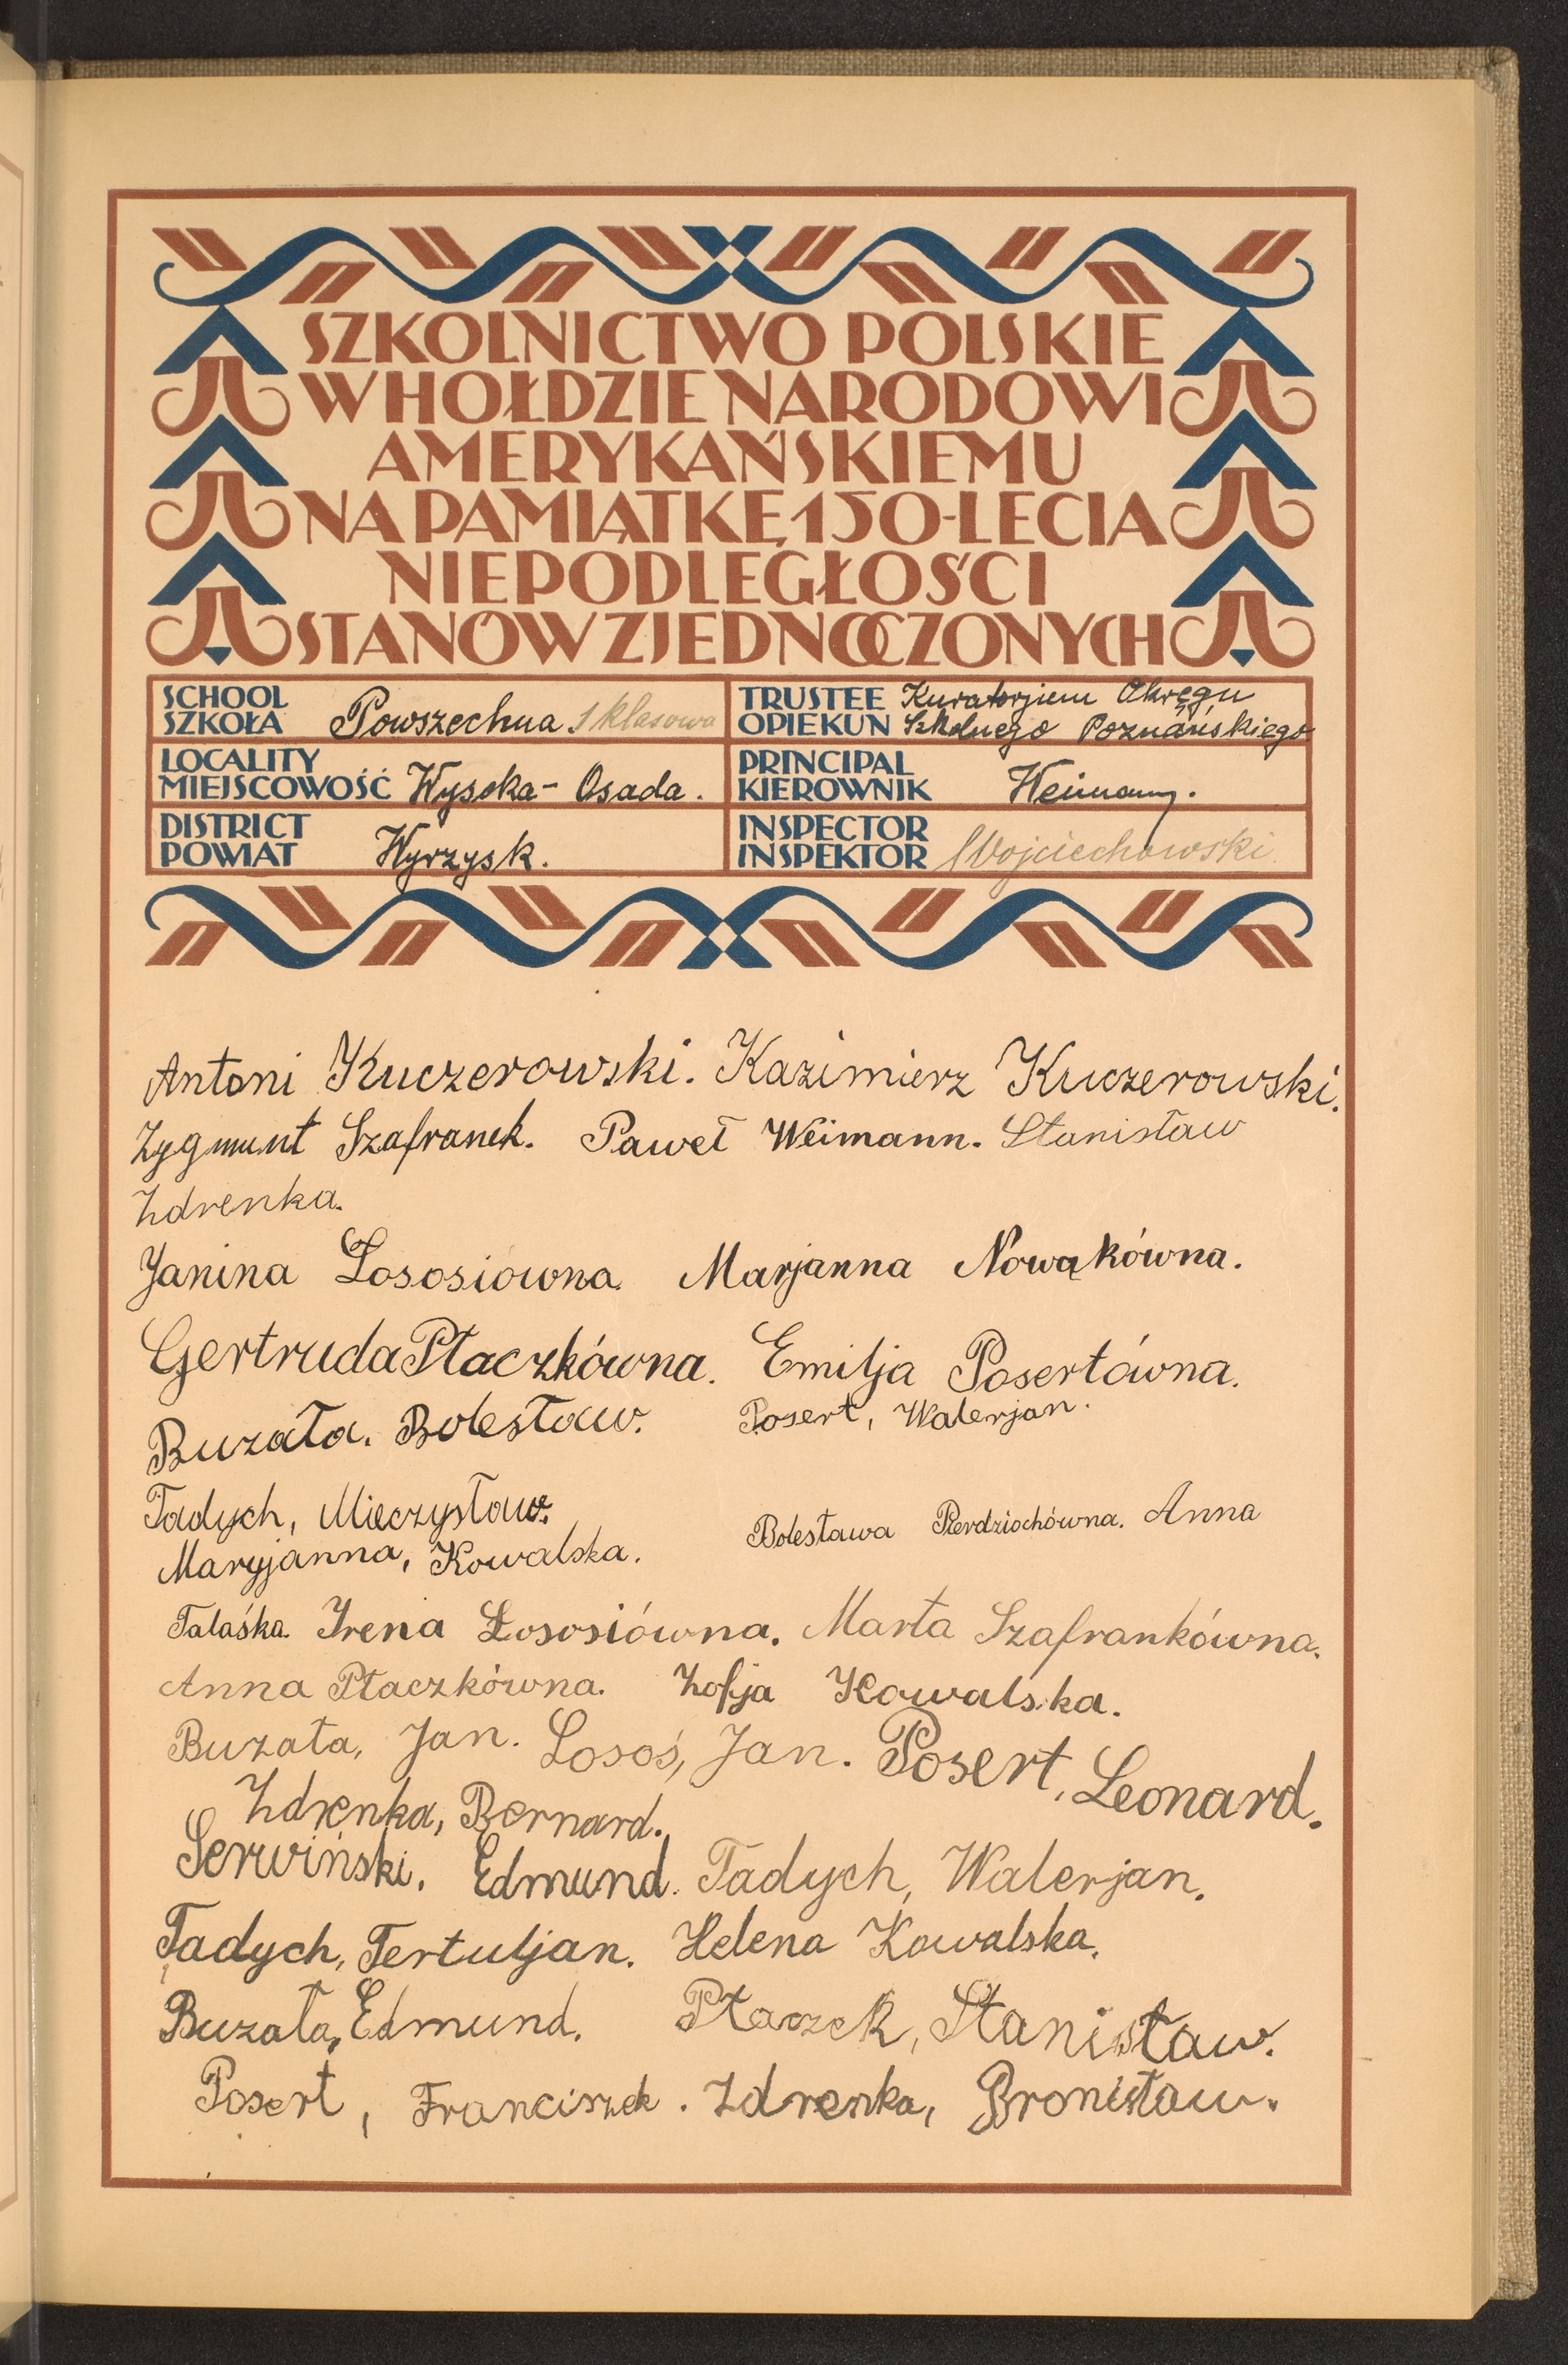 SZKOLNICTWO POLSKIE
W HOŁDZIE NARODOWI
AMERYKAŃSKIEMU
NA PAMIĄTKĘ 150-LECIA
NIEPODLEGŁOŚCI
STANÓW ZJEDNOCZONYCH
SCHOOL
SZKOŁA Powszechna 1 klasowa
TRUSTEE Kuratorjum Okręgu
OPIEKUN Szkolnego Poznańskiego
LOCALITY
MIEJSCOWOŚĆ Wysoka - Osada.
PRINCIPAL
KIEROWNIK Weimann.
DISTRICT
POWIAT Wyrzysk.
INSPECTOR
INSPEKTOR Wojciechowski
Antoni Kuczerowski. Kazimierz Kuczerowski.
Zygmunt Szafranek. Paweł Weimann. Stanisław
Zdrenka.
Janina Łososiówna. Marjanna Nowakówna.
Gertruda Ptaczkówna. Emilja Posertówna.
Buzała. Bolesław. Posert, Walerjan.
Tadych, Mieczysław.
Bolesława Pierdziochówna. Anna
Maryjanna, Kowalska.
Talaśka. Irena Łososiówna. Marta Szafrankówna.
Anna Ptaczkówna. Zofja Kowalska.
Buzała, Jan. Łosoś, Jan. Posert, Leonard.
Zdrenka, Bernard.
Serwiński. Edmund. Tadych, Walerjan.
Tadych, Tertuljan. Helena Kowalska.
Buzała, Edmund. Ptaczek, Stanisław.
Posert, Franciszek. Zdrenka, Bronisław.